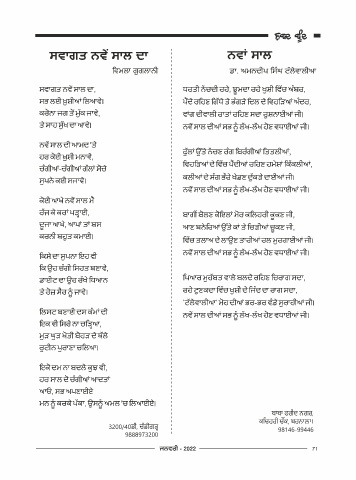 ਸ਼ਬਦ ਬੂੰਦ
ਸਵਾਗਤ ਨਵੇਂ ਸਾਲ ਦਾ
ਵਿਮਲਾ ਗੁਗਲਾਨੀ
ਸਵਾਗਤ ਨਵੇਂ ਸਾਲ ਦਾ,
ਸਭ ਲਈ ਖੁਸ਼ੀਆਂ ਲਿਆਵੇ।
ਕਰੋਨਾ ਜਗ ਤੋਂ ਮੁੱਕ ਜਾਵੇ,
ਤੇ ਸਾਹ ਸੁੱਖ ਦਾ ਆਵੇ।
ਨਵੇਂ ਸਾਲ ਦੀ ਆਮਦ 'ਤੇ
ਹਰ ਕੋਈ ਖੁਸ਼ੀ ਮਨਾਵੇ,
ਚੰਗੀਆਂ-ਚੰਗੀਆਂ ਗੱਲਾਂ ਸੋਚੇ
ਸੁਪਨੇ ਕਈ ਸਜਾਵੇ।
ਕੋਈ ਆਖੇ ਨਵੇਂ ਸਾਲ ਮੈਂ
ਰੱਜ ਕੇ ਕਰਾਂ ਪੜ੍ਹਾਈ,
ਦੂਜਾ ਆਖੇ, ਆਪਾਂ ਤਾਂ ਬਸ
ਕਰਨੀ ਬਹੁਤ ਕਮਾਈ।
ਕਿਸੇ ਦਾ ਸੁਪਨਾ ਇਹ ਵੀ
ਕਿ ਉਹ ਚੰਗੀ ਸਿਹਤ ਬਣਾਵੇ,
ਡਾਈਟ ਦਾ ਉਹ ਰੱਖੇ ਧਿਆਨ
ਤੇ ਰੋਜ਼ ਸੈਰ ਨੂੰ ਜਾਵੇ।
ਲਿਸਟ ਬਣਾਈ ਦਸ ਕੰਮਾਂ ਦੀ
ਇਕ ਵੀ ਸਿਰੇ ਨਾ ਚੜ੍ਹਿਆ,
ਮੁੜ ਖੂਹ ਖੋਤੀ ਬੋਹੜ ਦੇ ਥੱਲੇ
ਰੁਟੀਨ ਪੁਰਾਣਾ ਚਲਿਆ।
ਇਕੋ ਦਮ ਨਾ ਬਦਲੇ ਕੁਝ ਵੀ,
ਹਰ ਸਾਲ ਦੋ ਚੰਗੀਆਂ ਆਦਤਾਂ
ਆਓ, ਸਭ ਅਪਣਾਈਏ
ਮਨ ਨੂੰ ਕਰਕੇ ਪੱਕਾ, ਉਸਨੂੰ ਅਮਲ 'ਚ ਲਿਆਈਏ।
3200/40ਡੀ, ਚੰਡੀਗੜ੍ਹ
9888973200
ਨਵਾਂ ਸਾਲ
ਡਾ. ਅਮਨਦੀਪ ਸਿੰਘ ਟੱਲੇਵਾਲੀਆ
ਧਰਤੀ ਨੱਚਦੀ ਰਹੇ, ਝੂਮਦਾ ਰਹੇ ਖੁਸ਼ੀ ਵਿੱਚ ਅੰਬਰ,
ਪੈਂਦੇ ਰਹਿਣ ਗਿੱਧੇ ਤੇ ਭੰਗੜੇ ਦਿਲ ਦੇ ਵਿਹੜਿਆਂ ਅੰਦਰ,
ਵਾਂਗ ਦੀਵਾਲੀ ਰਾਤਾਂ ਰਹਿਣ ਸਦਾ ਰੁਸ਼ਨਾਈਆਂ ਜੀ।
ਨਵੇਂ ਸਾਲ ਦੀਆਂ ਸਭ ਨੂੰ ਲੱਖ-ਲੱਖ ਹੋਣ ਵਧਾਈਆਂ ਜੀ।
ਫੁੱਲਾਂ ਉੱਤੇ ਨੱਚਣ ਰੰਗ ਬਿਰੰਗੀਆਂ ਤਿਤਲੀਆਂ,
ਵਿਹੜਿਆਂ ਦੇ ਵਿੱਚ ਪੈਂਦੀਆਂ ਰਹਿਣ ਹਮੇਸ਼ਾਂ ਕਿੱਕਲੀਆਂ,
ਕਲੀਆਂ ਦੇ ਸੰਗ ਭੌਰੇ ਖੇਡਣ ਲੁੱਕਣ ਛਾਈਆਂ ਜੀ।
ਨਵੇਂ ਸਾਲ ਦੀਆਂ ਸਭ ਨੂੰ ਲੱਖ-ਲੱਖ ਹੋਣ ਵਧਾਈਆਂ ਜੀ।
ਬਾਗੀਂ ਬੋਲਣ ਕੋਇਲਾਂ ਮੋਰ ਕਲਿਹਰੀ ਕੂਕਣ ਜੀ,
ਆਣ ਬਨੇਰਿਆਂ ਉੱਤੇ ਕਾਂ ਤੇ ਚਿੜੀਆਂ ਚੂਕਣ ਜੀ,
ਵਿੱਚ ਤਲਾਅ ਦੇ ਲਾਉਣ ਤਾਰੀਆਂ ਹਲ ਮੁਰਗਾਈਆਂ ਜੀ।
ਨਵੇਂ ਸਾਲ ਦੀਆਂ ਸਭ ਨੂੰ ਲੱਖ-ਲੱਖ ਹੋਣ ਵਧਾਈਆਂ ਜੀ।
ਪਿਆਰ ਮੁਹੱਬਤ ਵਾਲੇ ਬਲਦੇ ਰਹਿਣ ਚਿਰਾਗ ਸਦਾ,
ਰਹੇ ਟੁਣਕਦਾ ਵਿੱਚ ਖੁਸ਼ੀ ਦੇ ਜਿੰਦ ਦਾ ਰਾਗ ਸਦਾ,
'ਟੱਲੇਵਾਲੀਆ' ਮੋਹ ਦੀਆਂ ਭਰ-ਭਰ ਵੰਡੇ ਸੁਰਾਹੀਆਂ ਜੀ।
ਨਵੇਂ ਸਾਲ ਦੀਆਂ ਸਭ ਨੂੰ ਲੱਖ-ਲੱਖ ਹੋਣ ਵਧਾਈਆਂ ਜੀ।
ਬਾਬਾ ਫਰੀਦ ਨਗਰ,
ਕਚਿਹਰੀ ਚੌਂਕ, ਬਰਨਾਲਾ।
98146-99446
ਜਨਵਰੀ - 2022
71